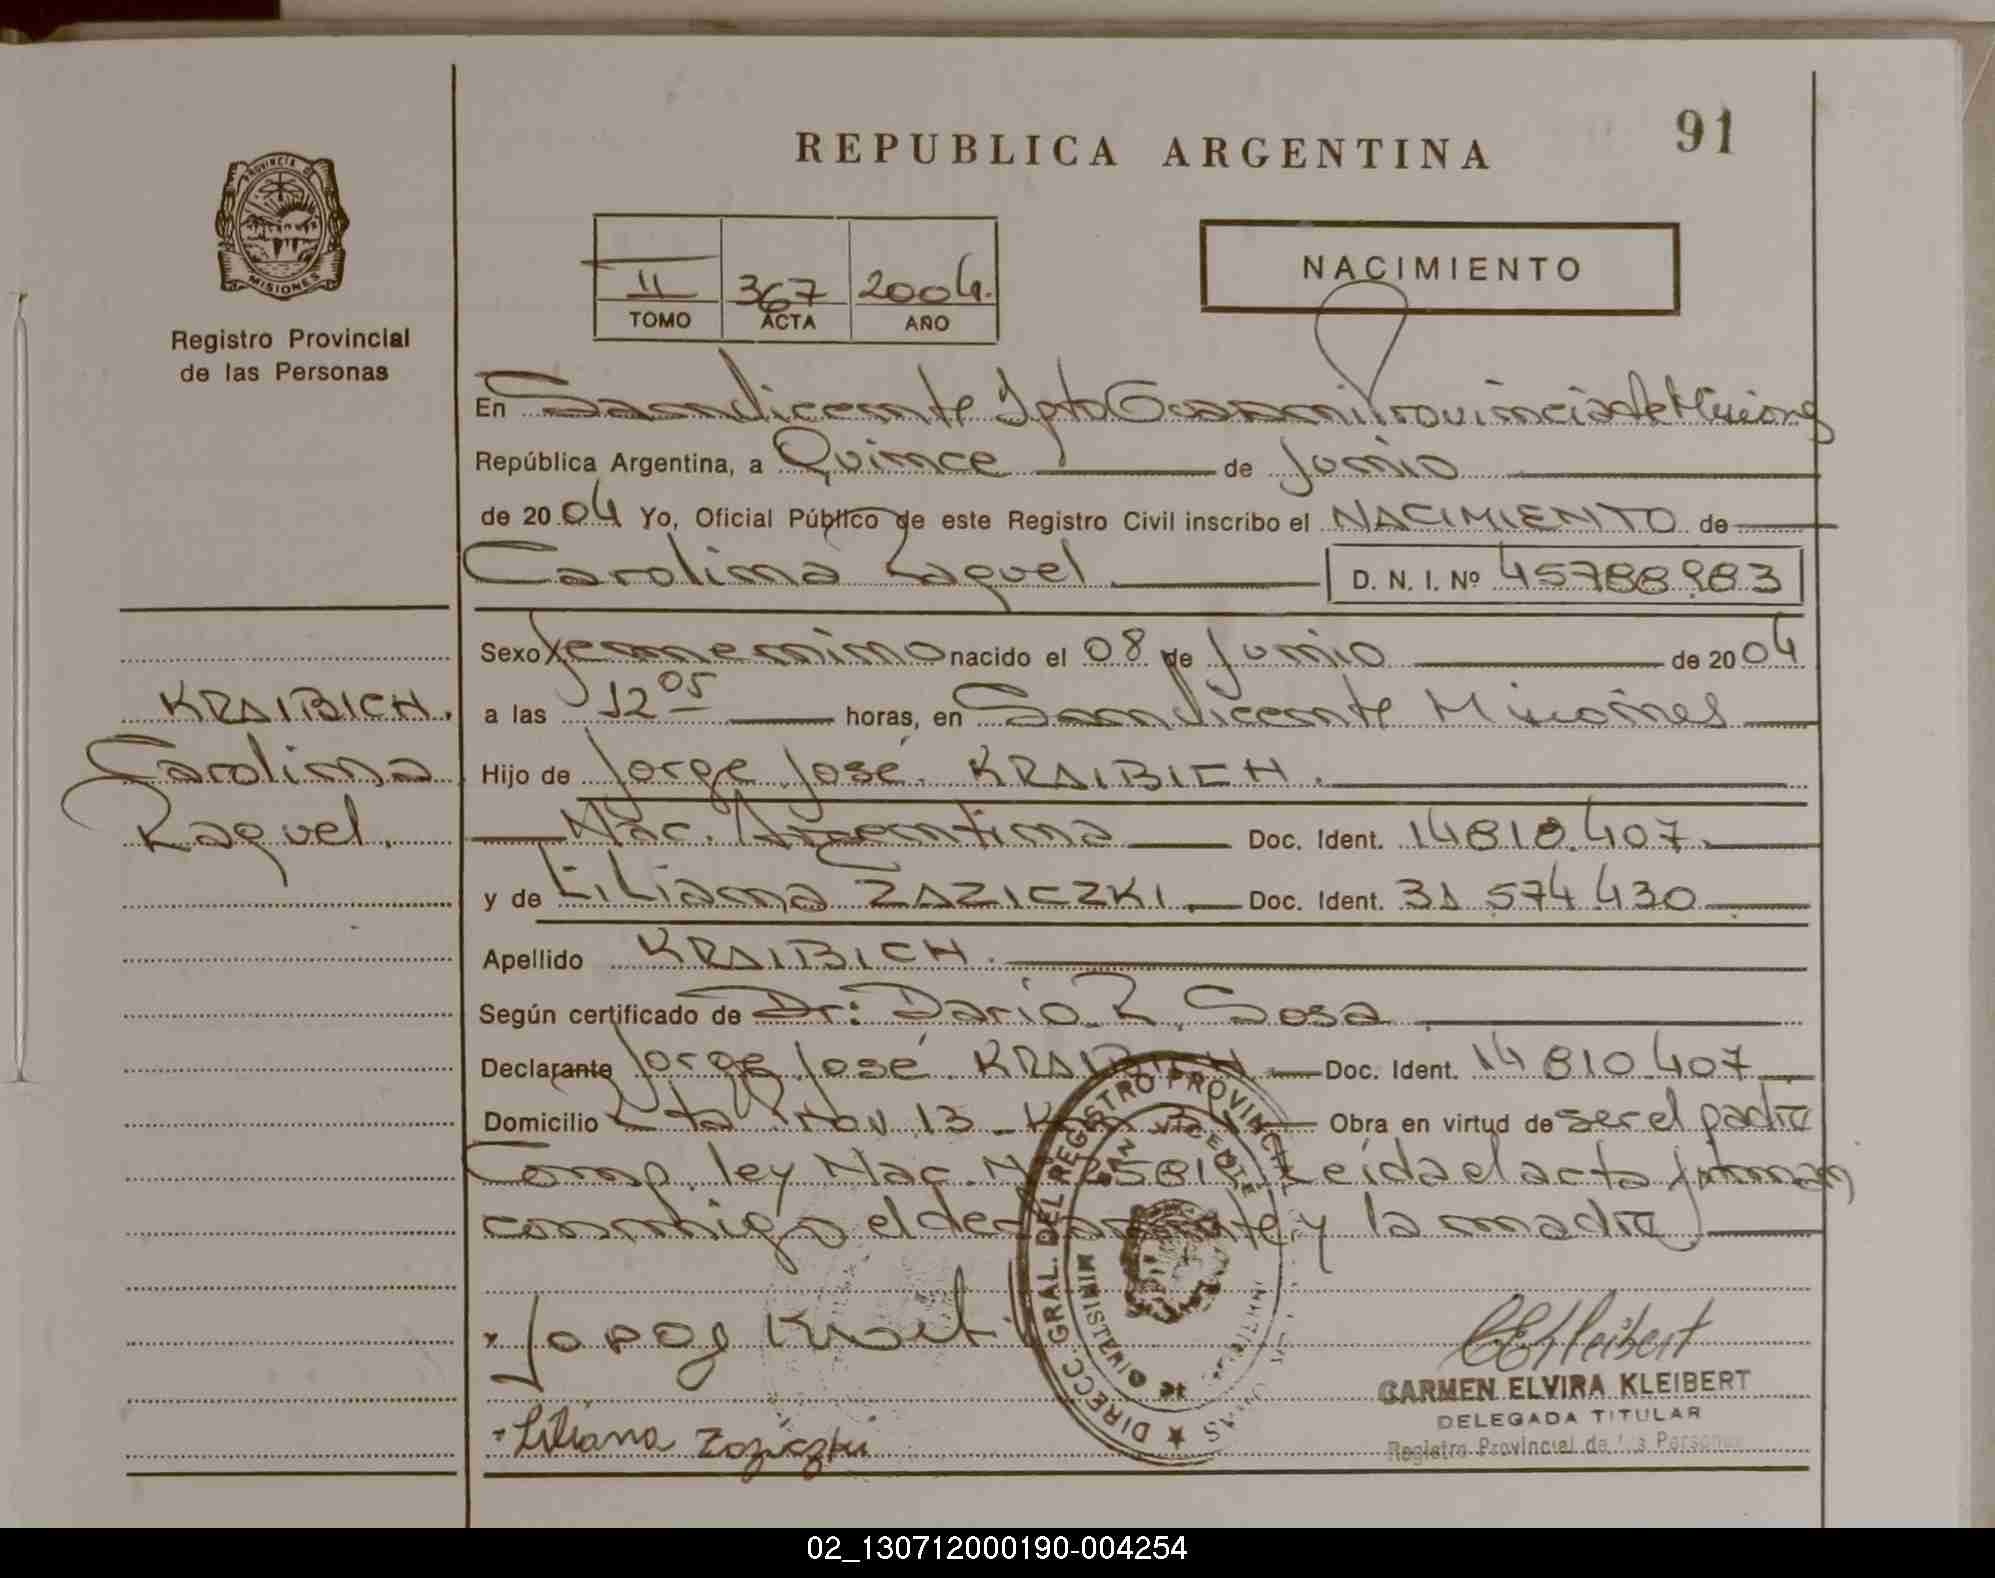 91
REPUBLICA ARGENTINA
PROVINCIA DE
MISIONES
Registro Provincial
de las Personas
II 367 2004.
TOMO ACTA AÑO
NACIMIENTO
En San Vicente Dpto Guaraní Provincia de Misiones
República Argentina, a Quince de Junio
de 2004 Yo, Oficial Público de este Registro Civil inscribo el NACIMIENTO de
Carolina Raquel D. N. I. Nº 45788983
Sexo Femenino nacido el 08 de Junio de 2004
a las 12 05 horas, en San Vicente Misiones
Hijo de Jorge José KRAIBICH.
Nac. Argentina Doc. Ident. 14810.407
y de Liliana ZAZICZKI. Doc. Ident. 31 574 430
Apellido KRAIBICH.
Según certificado de Dr: Dario R. Sosa
Declarante Jorge José KRAIBICH Doc. Ident. 14 810 407
Domicilio 13 Obra en virtud de ser el padre
Comp. ley Nac. Leída el acta firman
conmigo el declarante y la madre
KRAIBICH.
Carolina
Raquel.
DIRECC. GRAL. DEL REGISTRO PROVINCIAL
SAN VICENTE
MINISTERIO DE
Liliana Zaziczki
CEKleibert
CARMEN ELVIRA KLEIBERT
DELEGADA TITULAR
Registro Provincial de las Personas
02_130712000190-004254